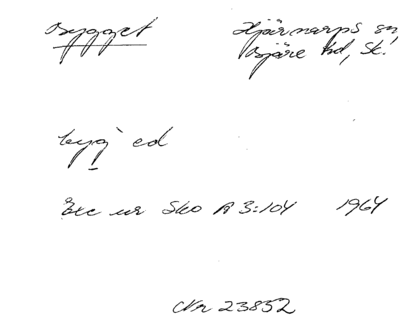 Bygget
Hjärnarps sn,
Bjäre hd, Sk.
byg`ed
Exc ur Sko A 3:104 1964
CNr 23852